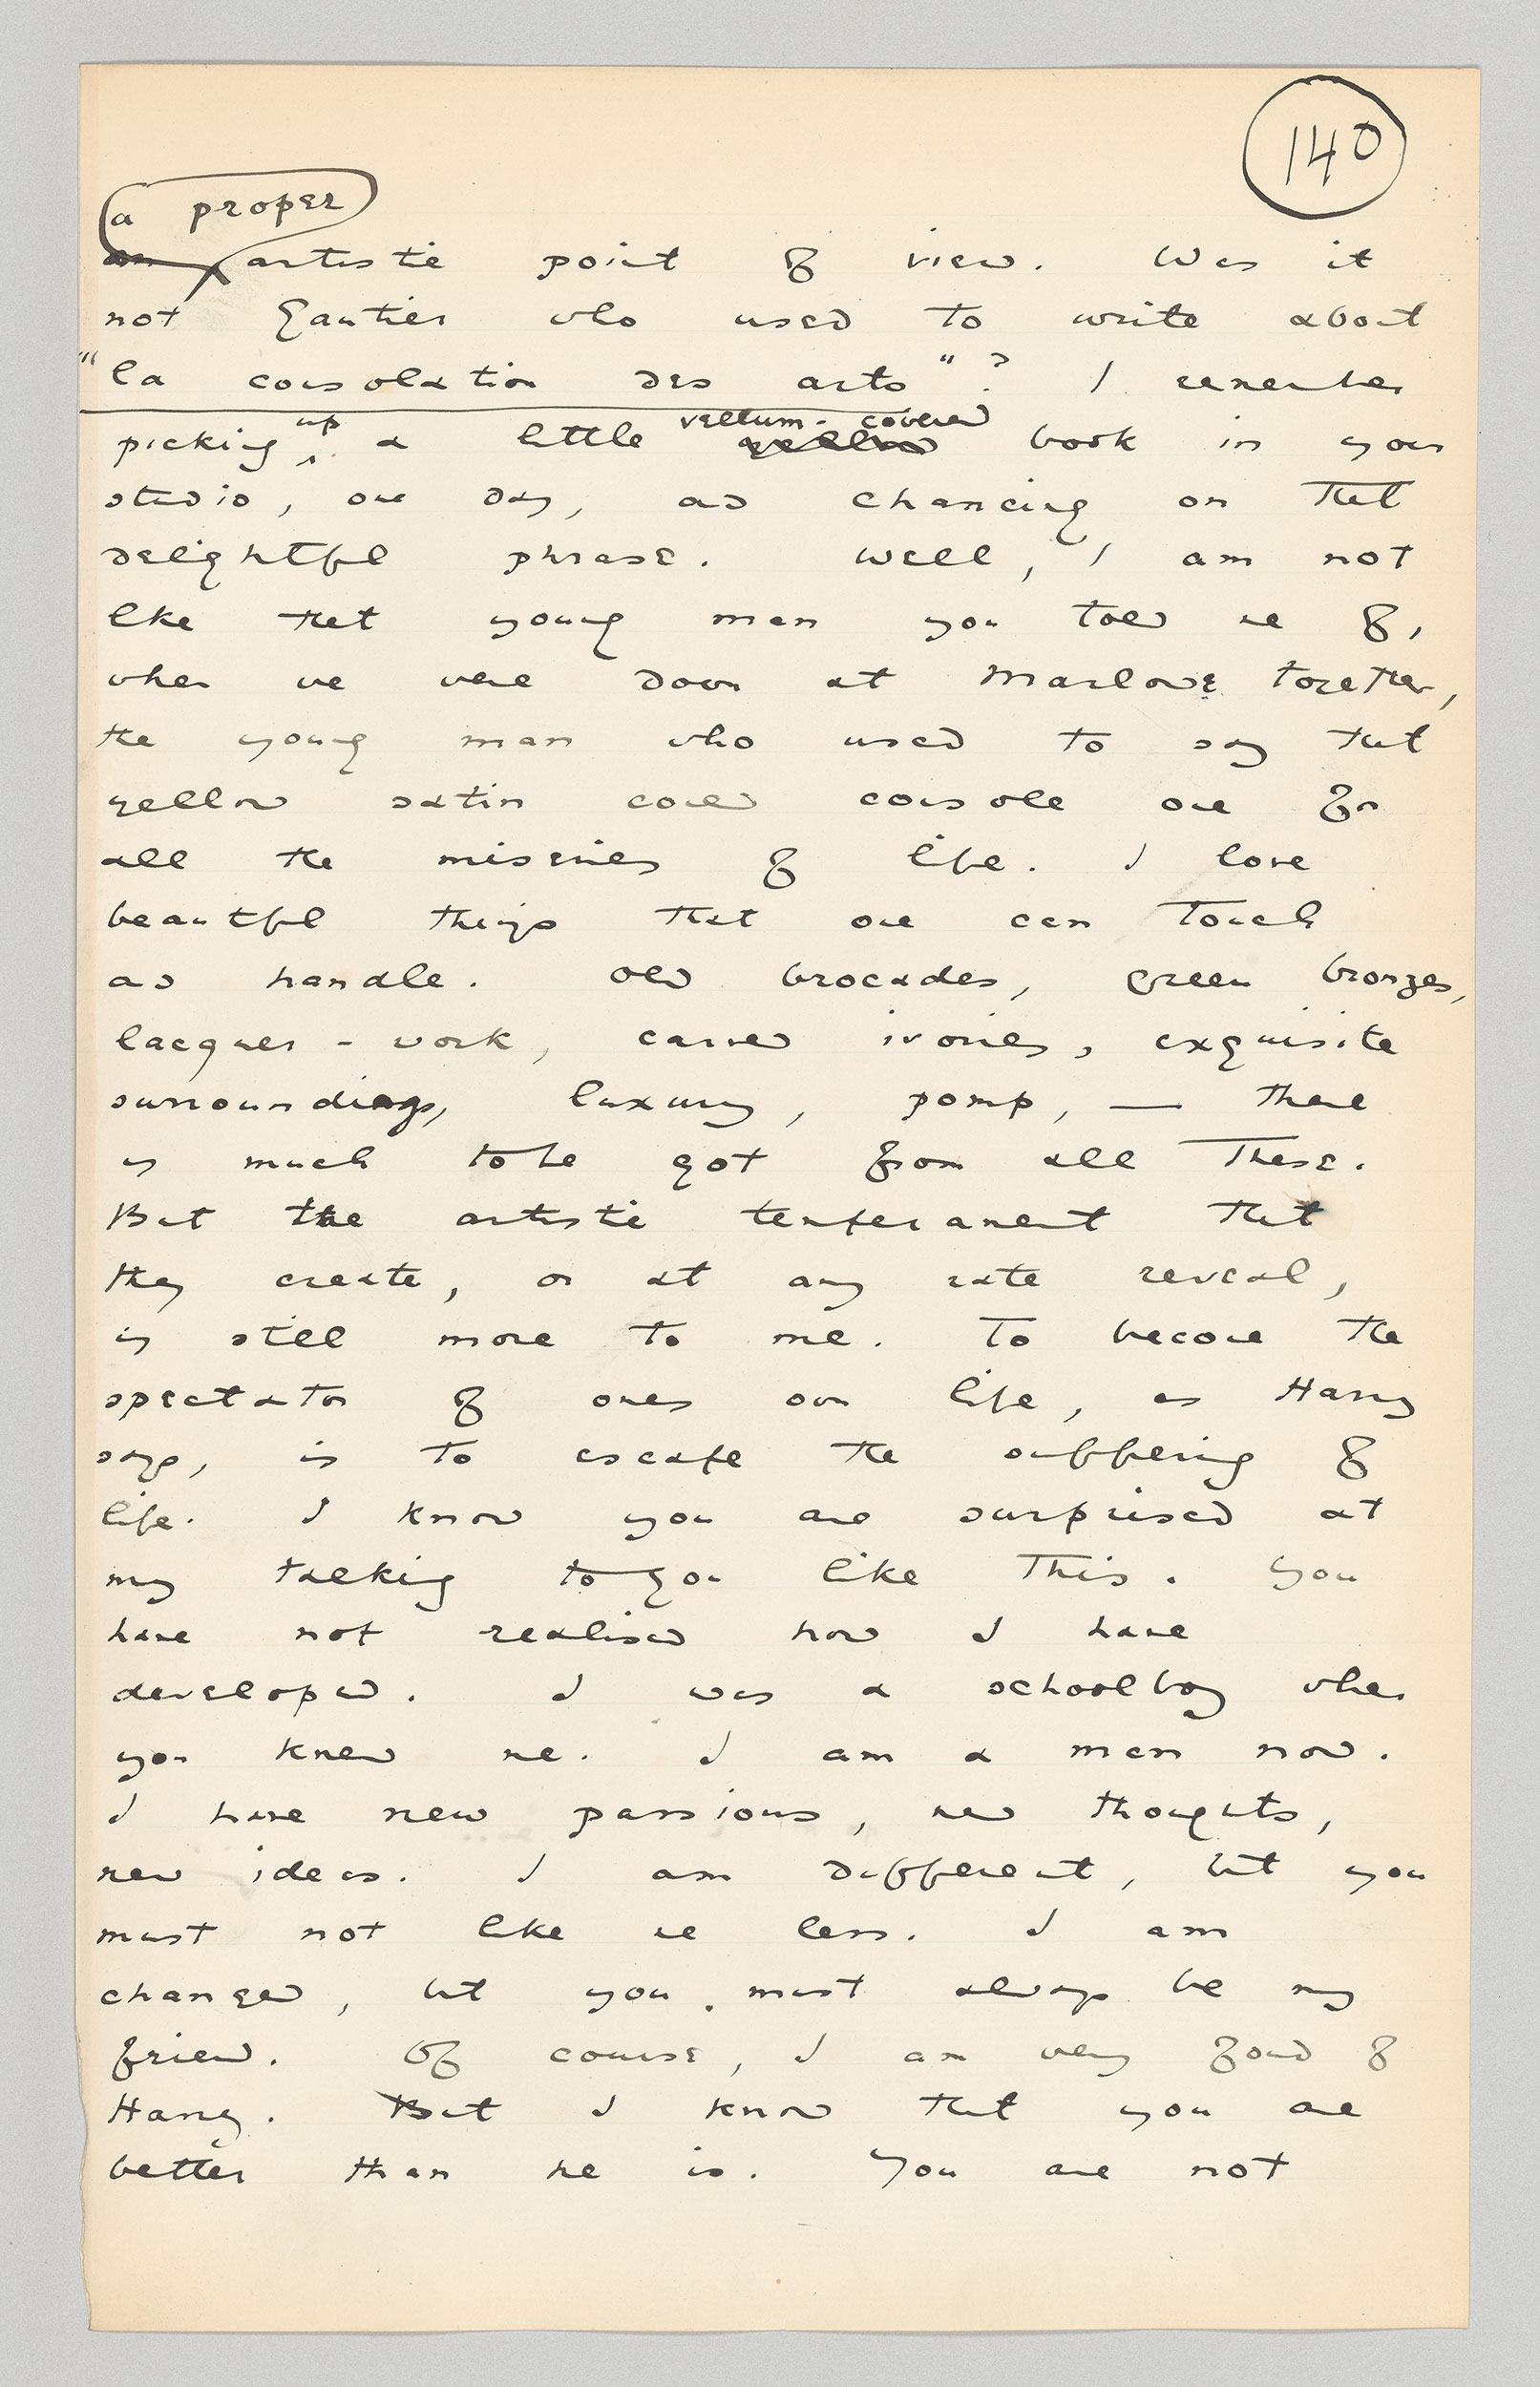 140
a proper
an artistic point of view. Was it
not Gautier who used to write about
"la consolation des arts"? I remember
picking up a little yellow vellum-covered book in your
studio, one day, and chancing on that
delightful phrase. Well, I am not
like that young man you told me of,
when we were down at Marlowe together,
the young man who used to say that
yellow satin could console one for
all the miseries of life. I love
beautiful things that one can touch
and handle. Old brocades, green bronzes,
lacquer-work, carved ivories, exquisite
surroundings, luxury, pomp, — there
is much to be got from all these.
But the artistic temperament that
they create, or at any rate reveal,
is still more to me. To become the
spectator of ones own life, as Harry
says, is to escape the suffering of
life. I know you are surprised at
my talking to you like this. You
have not realised how I have
developed. I was a schoolboy when
you knew me. I am a man now.
I have new passions, new thoughts,
new ideas. I am different, but you
must not like me less. I am
changed, but you must always be my
friend. Of course, I am very fond of
Harry. But I know that you are
better than he is. You are not